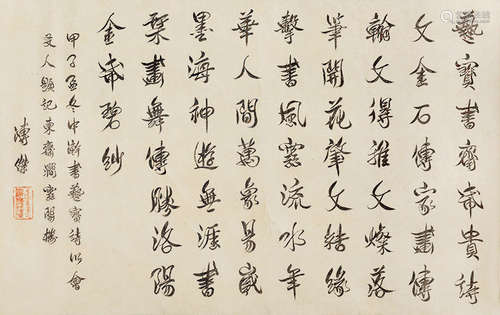 藝寶書齋帋貴詩
文金石傳家畫傳
翰文得雅文燦落
筆開花肇文結緣
擊書風雲流水年
華人間萬象易歲
墨海神遊無涯書
琹畫舞傳勝洛陽
金帋碧紗
甲子孟冬中浣書藝齋詩以會
友人題記東齋雲閣
溥傑